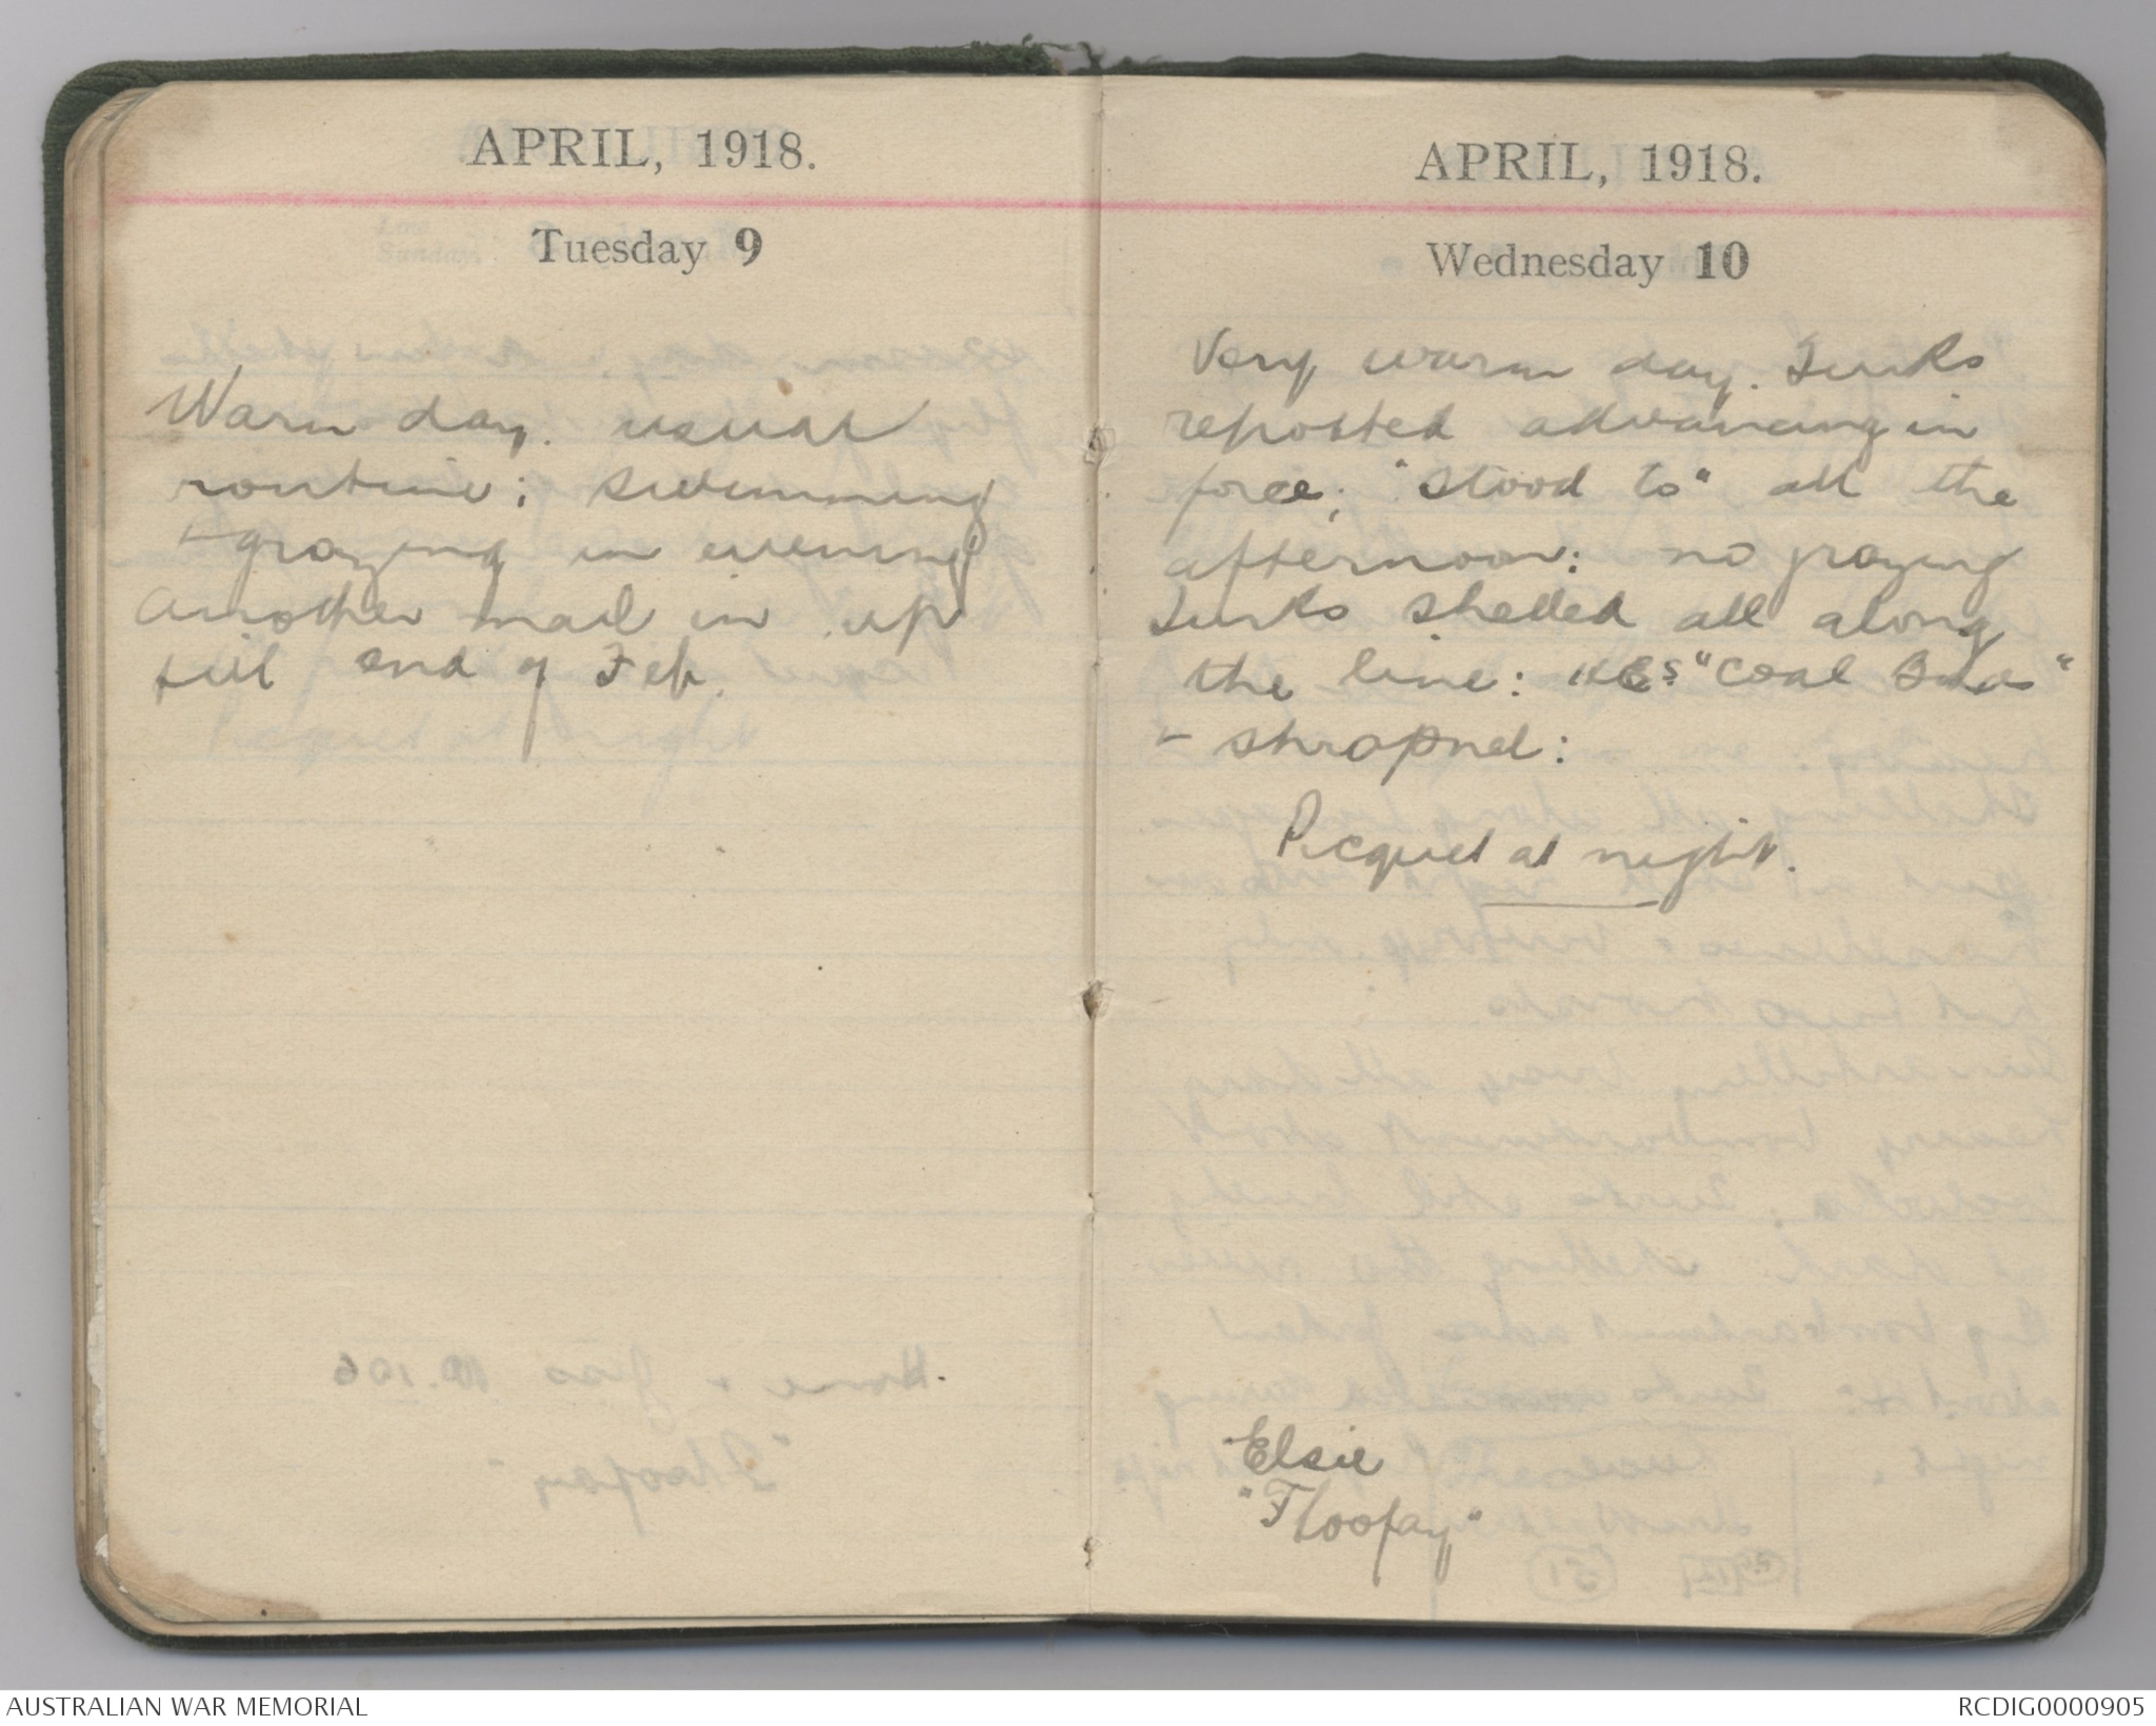 APRIL, 1918.
Tuesday 9
Warm day. usual
routine; swimming
+ grazing in evening
Another mail in up
till end of Feb.
APRIL, 1918.
Wednesday 10
Very warm day. Turks
reported advancing in
force; "stood to" all the
afternoon: no grazing
Turks shelled all along
the line: "Coal Bxs"
+ shrapnel:
Picquet at night.
Elsie
"Floofay"
AUSTRALIAN WAR MEMORIAL
RCDIG0000905